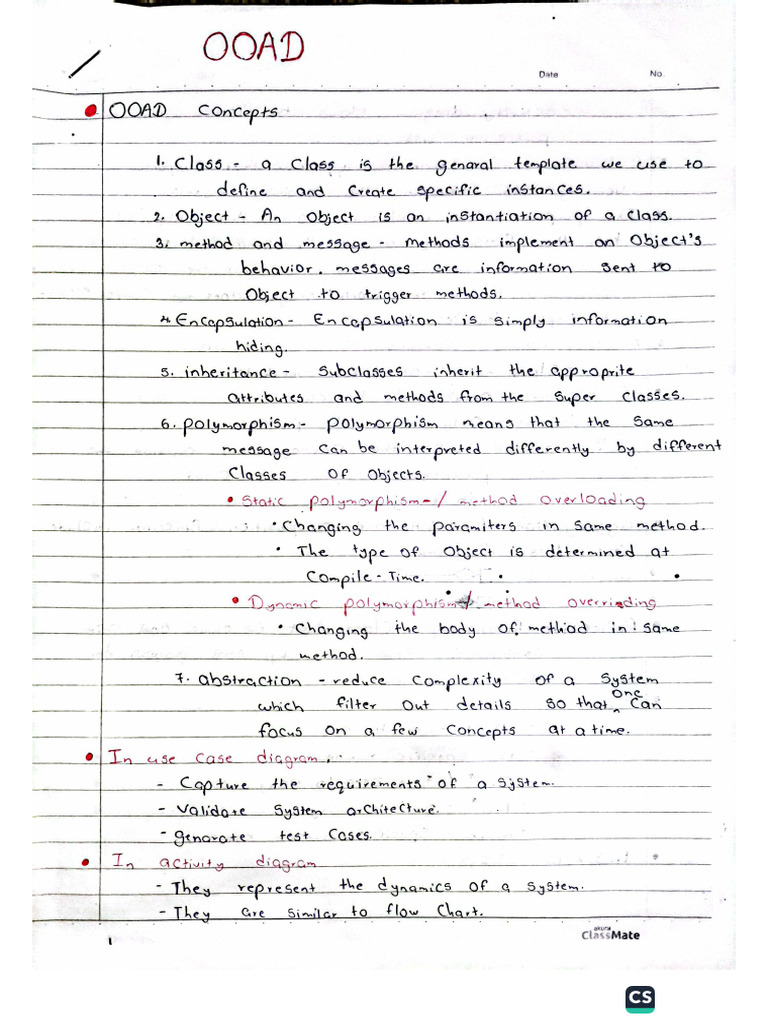 OOAD
Date No.
OOAD Concepts
1. Class - a Class is the genaral template we use to
define and Create specific instances.
2. Object - An Object is an instantiation of a class.
3. method and message - Methods implement an Object's
behavior. messages are information sent to
Object to trigger methods.
4. Encapsulation - Encapsulation is simply information
hiding.
5. inheritance - Subclasses inherit the approprite
attributes and methods from the super classes.
6. polymorphism - polymorphism means that the same
message can be interpreted differently by different
Classes of Objects.
• Static polymorphism - / method overloading
• Changing the paramiters in same method.
• The type of Object is determined at
Compile - Time.
• Dynamic polymorphism / method overriding
• Changing the body of method in same
method.
7. abstraction - reduce Complexity of a System
which filter out details so that one can
focus on a few Concepts at a time.
• In use case diagram.
- Capture the requirements of a system.
- Validate System architecture.
- genarate test Cases.
• In activity diagram
- They represent the dynamics of a system.
- They are similar to flow Chart.
1
akura
ClassMate
CS